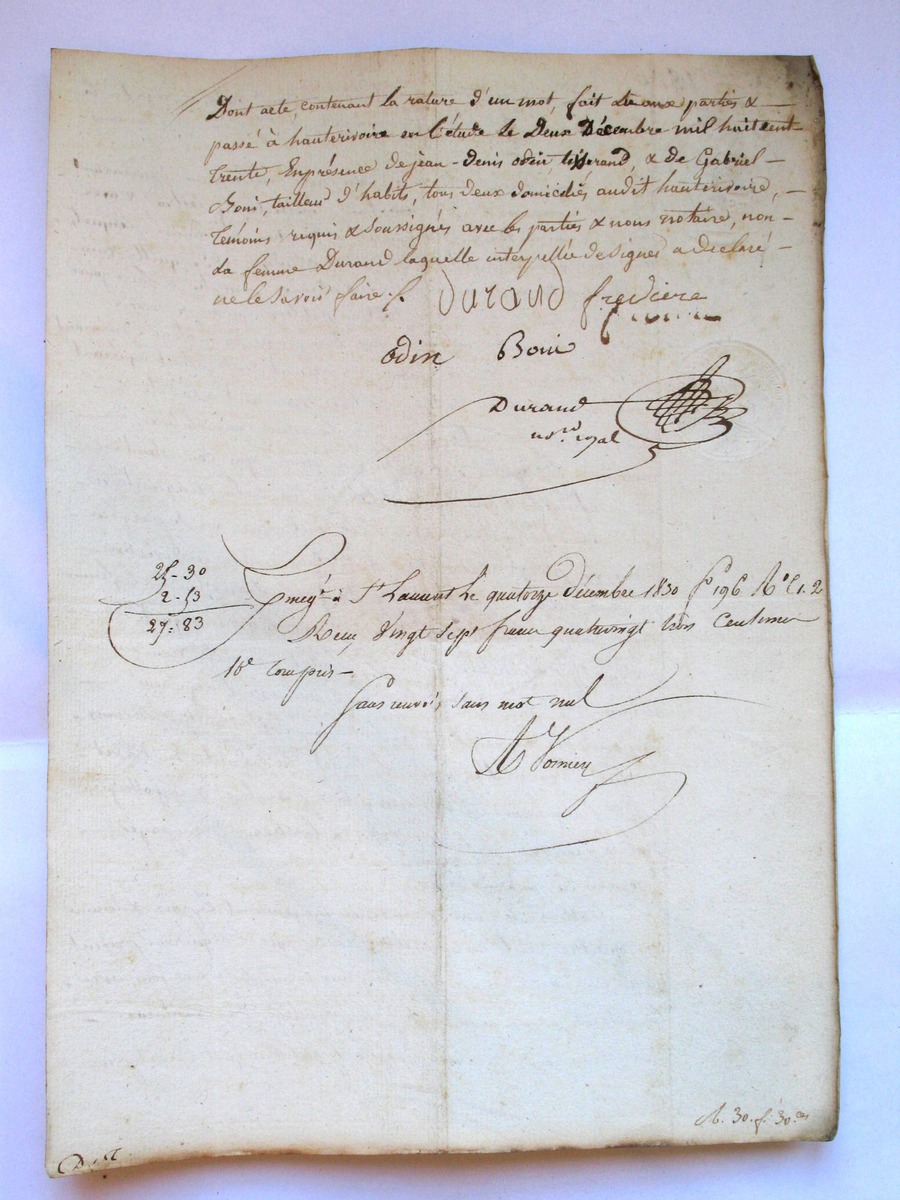 Dont acte, contenant la rature d'un mot, fait lu aux parties &
passé à hauterivoire en l'étude le Deux Décembre mil huit cent
trente, En présence de jean-denis odin tisserand, & de Gabriel
Boni, tailleur d'habits, tous deux domiciliés audit hauterivoire,
témoins requis & soussignés avec les parties & nous notaire, non
la femme Durand laquelle interpellée de signer a declaré
ne le savoir faire /.
Durand fredière
odin Boni
Durand
no.re royal
25-30
2-53
27-83
à St Laurent Le quatorze décembre 1830 fo 196 Ro C. 2
Reçu Vingt Sept francs quatrevingt trois Centimes
10e Compris
Sans renvoi, sans mot nul
30. f. 30 ces